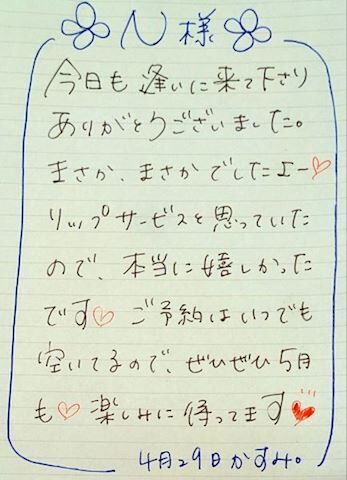 N様
今日も逢いに来て下さり
ありがとうございました。
まさか、まさかでしたエー♡
リップサービスと思っていた
ので、本当に嬉しかった
です♡ ご予約はいつでも
空いてるので、ぜひぜひ5月
も♡楽しみに待ってます♥
4月29日かすみ。